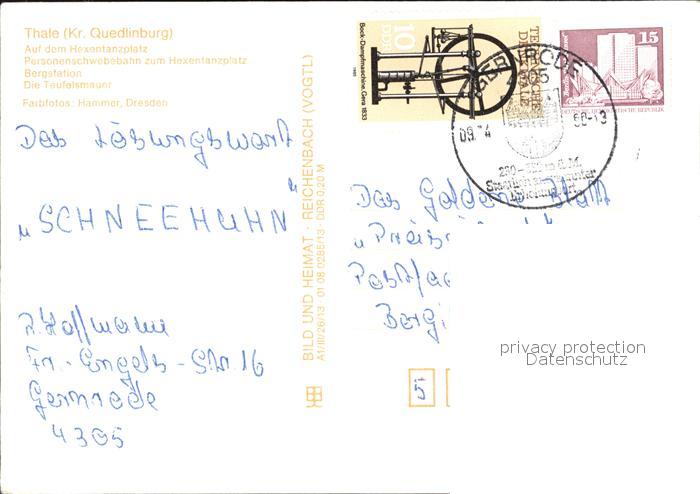 Thale (Kr. Quedlinburg)
Auf dem Hexentanzplatz
Personenschwebebahn zum Hexentanzplatz
Bergstation
Die Teufelsmauer
Farbfotos: Hammer, Dresden
Das Lösungswort
„SCHNEEHUHN"
R. Hoffmann
Fr.-Engels-Str. 16
Gernrode
4305
BILD UND HEIMAT · REICHENBACH (VOGTL)
A1/III/26/13 01 08 0285/13 · DDR 0,20 M
10
DDR
TECHNISCHE
DENKMALE
Bock-Dampfmaschine, Gera 1833
1985
15
DEUTSCHE DEMOKRATISCHE REPUBLIK
Das Goldene Blatt
Postfac
5
privacy protection
Datenschutz